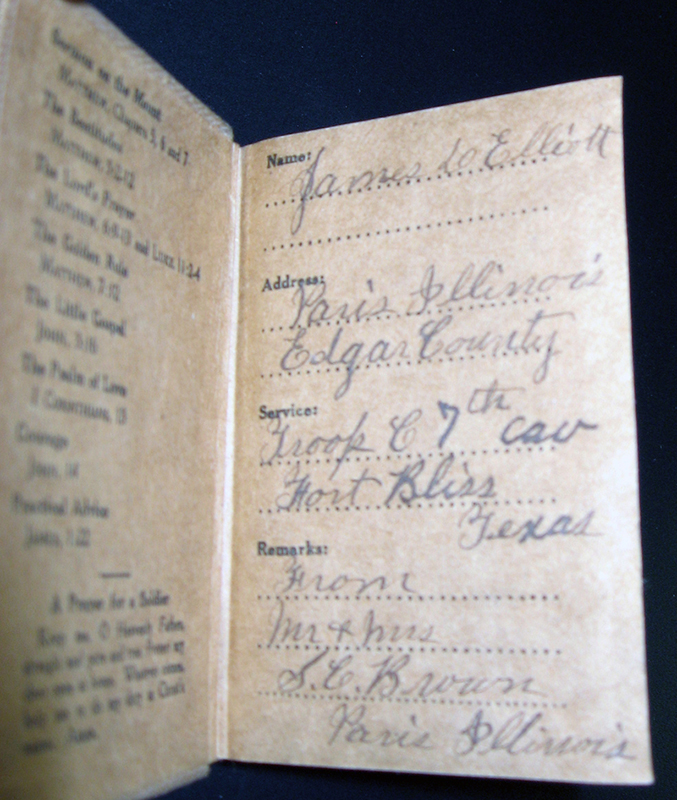 Sermon on the Mount
Matthew, Chapters 5, 6 and 7
The Beatitudes
Matthew, 5:2-12
The Lord's Prayer
Matthew, 6:8-13 and Luke 11:2-4
The Golden Rule
Matthew, 7:12
The Little Gospel
John, 3:16
The Psalm of Love
I Corinthians, 13
Courage
John, 14
Practical Advice
James, 1:22
A Prayer for a Soldier
Keep me, O Heavenly Father,
Name:
James Elliott
Address:
Paris Illinois
Edgar County
Service:
Troop C 7th cav
Fort Bliss
Texas
Remarks:
From
Mr & Mrs
S.C. Brown
Paris Illinois